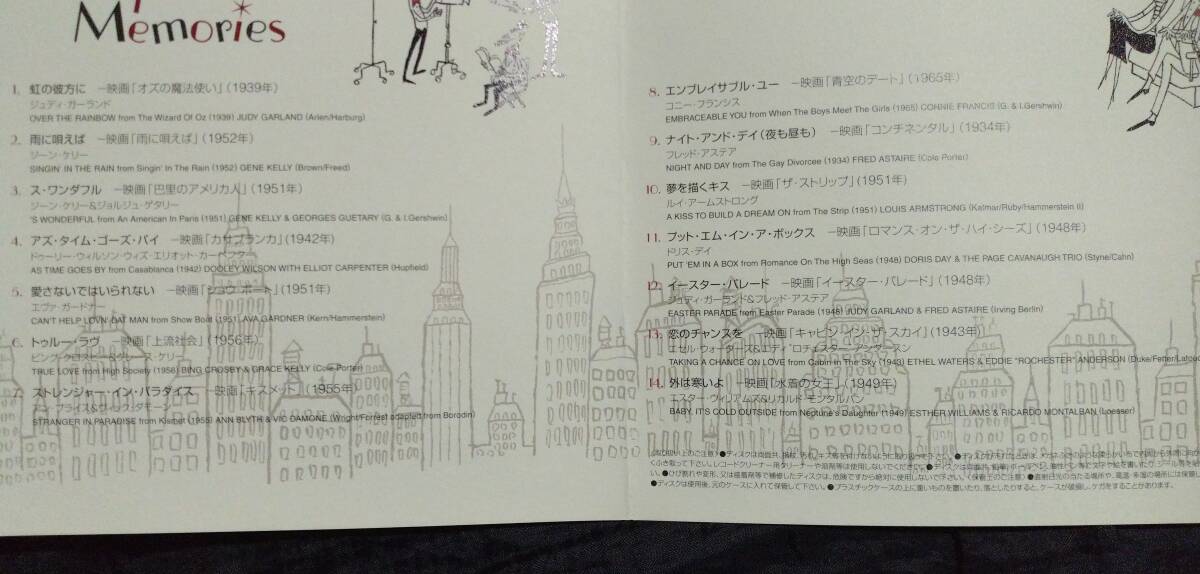 Memories
1. 虹の彼方に －映画「オズの魔法使い」(1939年)
ジュディ・ガーランド
OVER THE RAINBOW from The Wizard Of Oz (1939) JUDY GARLAND (Arlen/Harburg)
2. 雨に唄えば －映画「雨に唄えば」(1952年)
ジーン・ケリー
SINGIN' IN THE RAIN from Singin' In The Rain (1952) GENE KELLY (Brown/Freed)
3. ス・ワンダフル －映画「巴里のアメリカ人」(1951年)
ジーン・ケリー&ジョルジュ・ゲタリー
'S WONDERFUL from An American In Paris (1951) GENE KELLY & GEORGES GUETARY (G. & I.Gershwin)
4. アズ・タイム・ゴーズ・バイ －映画「カサブランカ」(1942年)
ドゥーリー・ウィルソン・ウィズ・エリオット・カーペンター
AS TIME GOES BY from Casablanca (1942) DOOLEY WILSON WITH ELLIOT CARPENTER (Hupfield)
5. 愛さないではいられない －映画「ショウ・ボート」(1951年)
エヴァ・ガードナー
CAN'T HELP LOVN' DAT MAN from Show Boat (1951) AVA GARDNER (Kern/Hammerstein)
6. トゥルー・ラヴ －映画「上流社会」(1956年)
ビング・クロスビー&グレース・ケリー
TRUE LOVE from High Society (1956) BING CROSBY & GRACE KELLY (Cole Porter)
7. ストレンジャー・イン・パラダイス －映画「キスメット」(1955年)
アン・ブライス&ヴィック・ダモーン
STRANGER IN PARADISE from Kismet (1955) ANN BLYTH & VIC DAMONE (Wright/Forrest adapted from Borodin)
8. エンブレイサブル・ユー －映画「青空のデート」(1965年)
コニー・フランシス
EMBRACEABLE YOU from When The Boys Meet The Girls (1965) CONNIE FRANCIS (G. & I.Gershwin)
9. ナイト・アンド・デイ(夜も昼も) －映画「コンチネンタル」(1934年)
フレッド・アステア
NIGHT AND DAY from The Gay Divorcee (1934) FRED ASTAIRE (Cole Porter)
10. 夢を描くキス －映画「ザ・ストリップ」(1951年)
ルイ・アームストロング
A KISS TO BUILD A DREAM ON from The Strip (1951) LOUIS ARMSTRONG (Kalmar/Ruby/Hammerstein II)
11. プット・エム・イン・ア・ボックス －映画「ロマンス・オン・ザ・ハイ・シーズ」(1948年)
ドリス・デイ
PUT 'EM IN A BOX from Romance On The High Seas (1948) DORIS DAY & THE PAGE CAVANAUGH TRIO (Styne/Cahn)
12. イースター・パレード －映画「イースター・パレード」(1948年)
ジュディ・ガーランド&フレッド・アステア
EASTER PARADE from Easter Parade (1948) JUDY GARLAND & FRED ASTAIRE (Irving Berlin)
13. 恋のチャンスを －映画「キャビン・イン・ザ・スカイ」(1943年)
エセル・ウォーターズ&エディ"ロチェスター"アンダーソン
TAKING A CHANCE ON LOVE from Cabin In The Sky (1943) ETHEL WATERS & EDDIE "ROCHESTER" ANDERSON (Duke/Fetter/Latouc
14. 外は寒いよ －映画「水着の女王」(1949年)
エスター・ウィリアムズ&リカルド・モンタルバン
BABY, IT'S COLD OUTSIDE from Neptune's Daughter (1949) ESTHER WILLIAMS & RICARDO MONTALBAN (Loesser)
くふき取って下さい。レコードクリーナー用クリーナーや溶剤等は使用しないでください。●ディスクは両面共、鉛筆、ボールペン、油性ペン等で文字や絵を書いたり、シール等を
い。●ひび割れや変形、又は接着剤等で補修したディスクは、危険ですから絶対に使用しないで下さい。〈保管上のご注意〉●直射日光の当たる場所や、高温・多湿の場所には保管し
●ディスクは使用後、元のケースに入れて保管して下さい。●プラスチックケースの上に重いものを置いたり、落としたりすると、ケースが破損し、ケガをすることがあります。